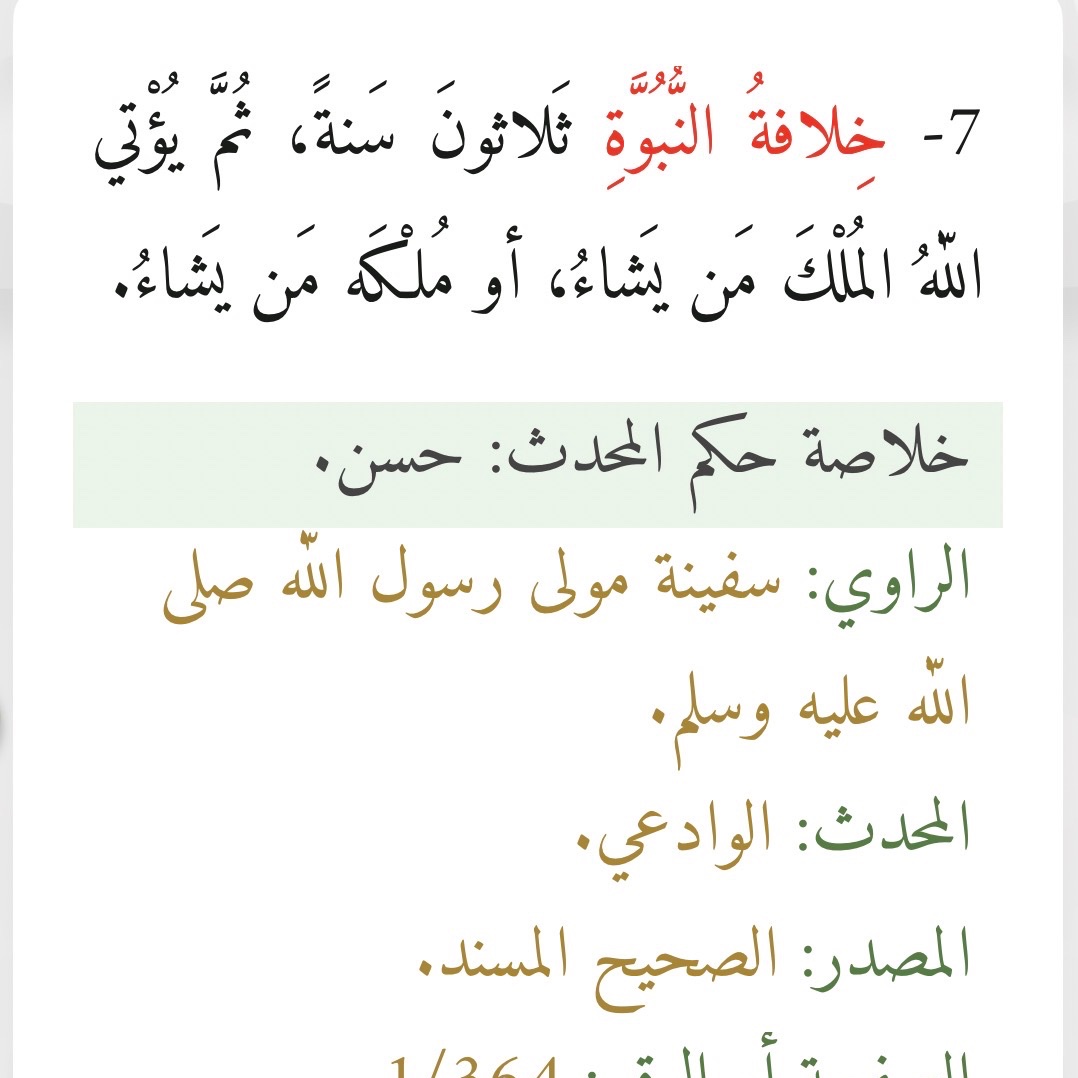 7- خِلافةُ النُّبُوَّةِ ثَلاثونَ سَنةً، ثُمَّ يُؤْتي
اللهُ المُلْكَ مَن يَشاءُ، أو مُلْكَه مَن يَشاءُ.
خلاصة حكم المحدث: حسن.
الراوي: سفينة مولى رسول الله صلى
الله عليه وسلم.
المحدث: الوادعي.
المصدر: الصحيح المسند.
الصفحة أو الرقم: 1/364